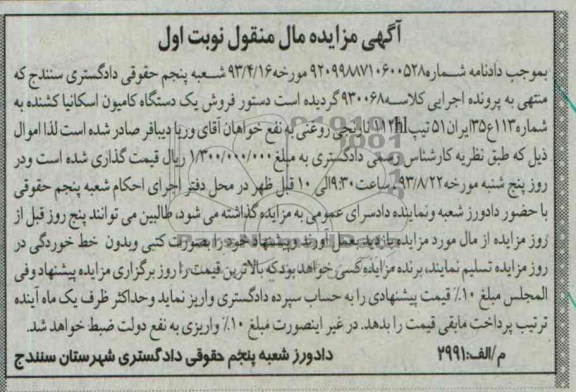 آگهی مزایده مال منقول نوبت اول
بموجب دادنامه شماره۹۲۰۹۹۸۸۷۱۰۶۰۰۵۲۸ مورخه۹۳/۴/۱۶ شعبه پنجم حقوقی دادگستری سنندج که
منتهی به پرونده اجرایی کلاسه۹۳۰۰۶۸ گردیده است دستور فروش یک دستگاه کامیون اسکانیا کشنده به
شماره۱۱۳ع۳۵ایران۵۱ تیپ ۱۱۲hl نارنجی روغنی به نفع خواهان آقای وریا دیبافر صادر شده است لذا اموال
ذیل که طبق نظریه کارشناس رسمی دادگستری به مبلغ ۱/۳۰۰/۰۰۰/۰۰۰ ریال قیمت گذاری شده است ودر
روز پنج شنبه مورخه۹۳/۸/۲۲ ساعت۹:۳۰الی ۱۰ قبل ظهر در محل دفتر اجرای احکام شعبه پنجم حقوقی
با حضور دادورز شعبه ونماینده دادسرای عمومی به مزایده گذاشته می شود، طالبین می توانند پنج روز قبل از
روز مزایده از مال مورد مزایده بازدید بعمل آورند وپیشنهاد خود را بصورت کتبی وبدون خط خوردگی در
روز مزایده تسلیم نمایند، برنده مزایده کسی خواهد بود که بالاترین قیمت را روز برگزاری مزایده پیشنهاد وفی
المجلس مبلغ ۱۰٪ قیمت پیشنهادی را به حساب سپرده دادگستری واریز نماید وحداکثر ظرف یک ماه آینده
ترتیب پرداخت مابقی قیمت را بدهد. در غیر اینصورت مبلغ ۱۰٪ واریزی به نفع دولت ضبط خواهد شد.
م/الف:۲۹۹۱ دادورز شعبه پنجم حقوقی دادگستری شهرستان سنندج